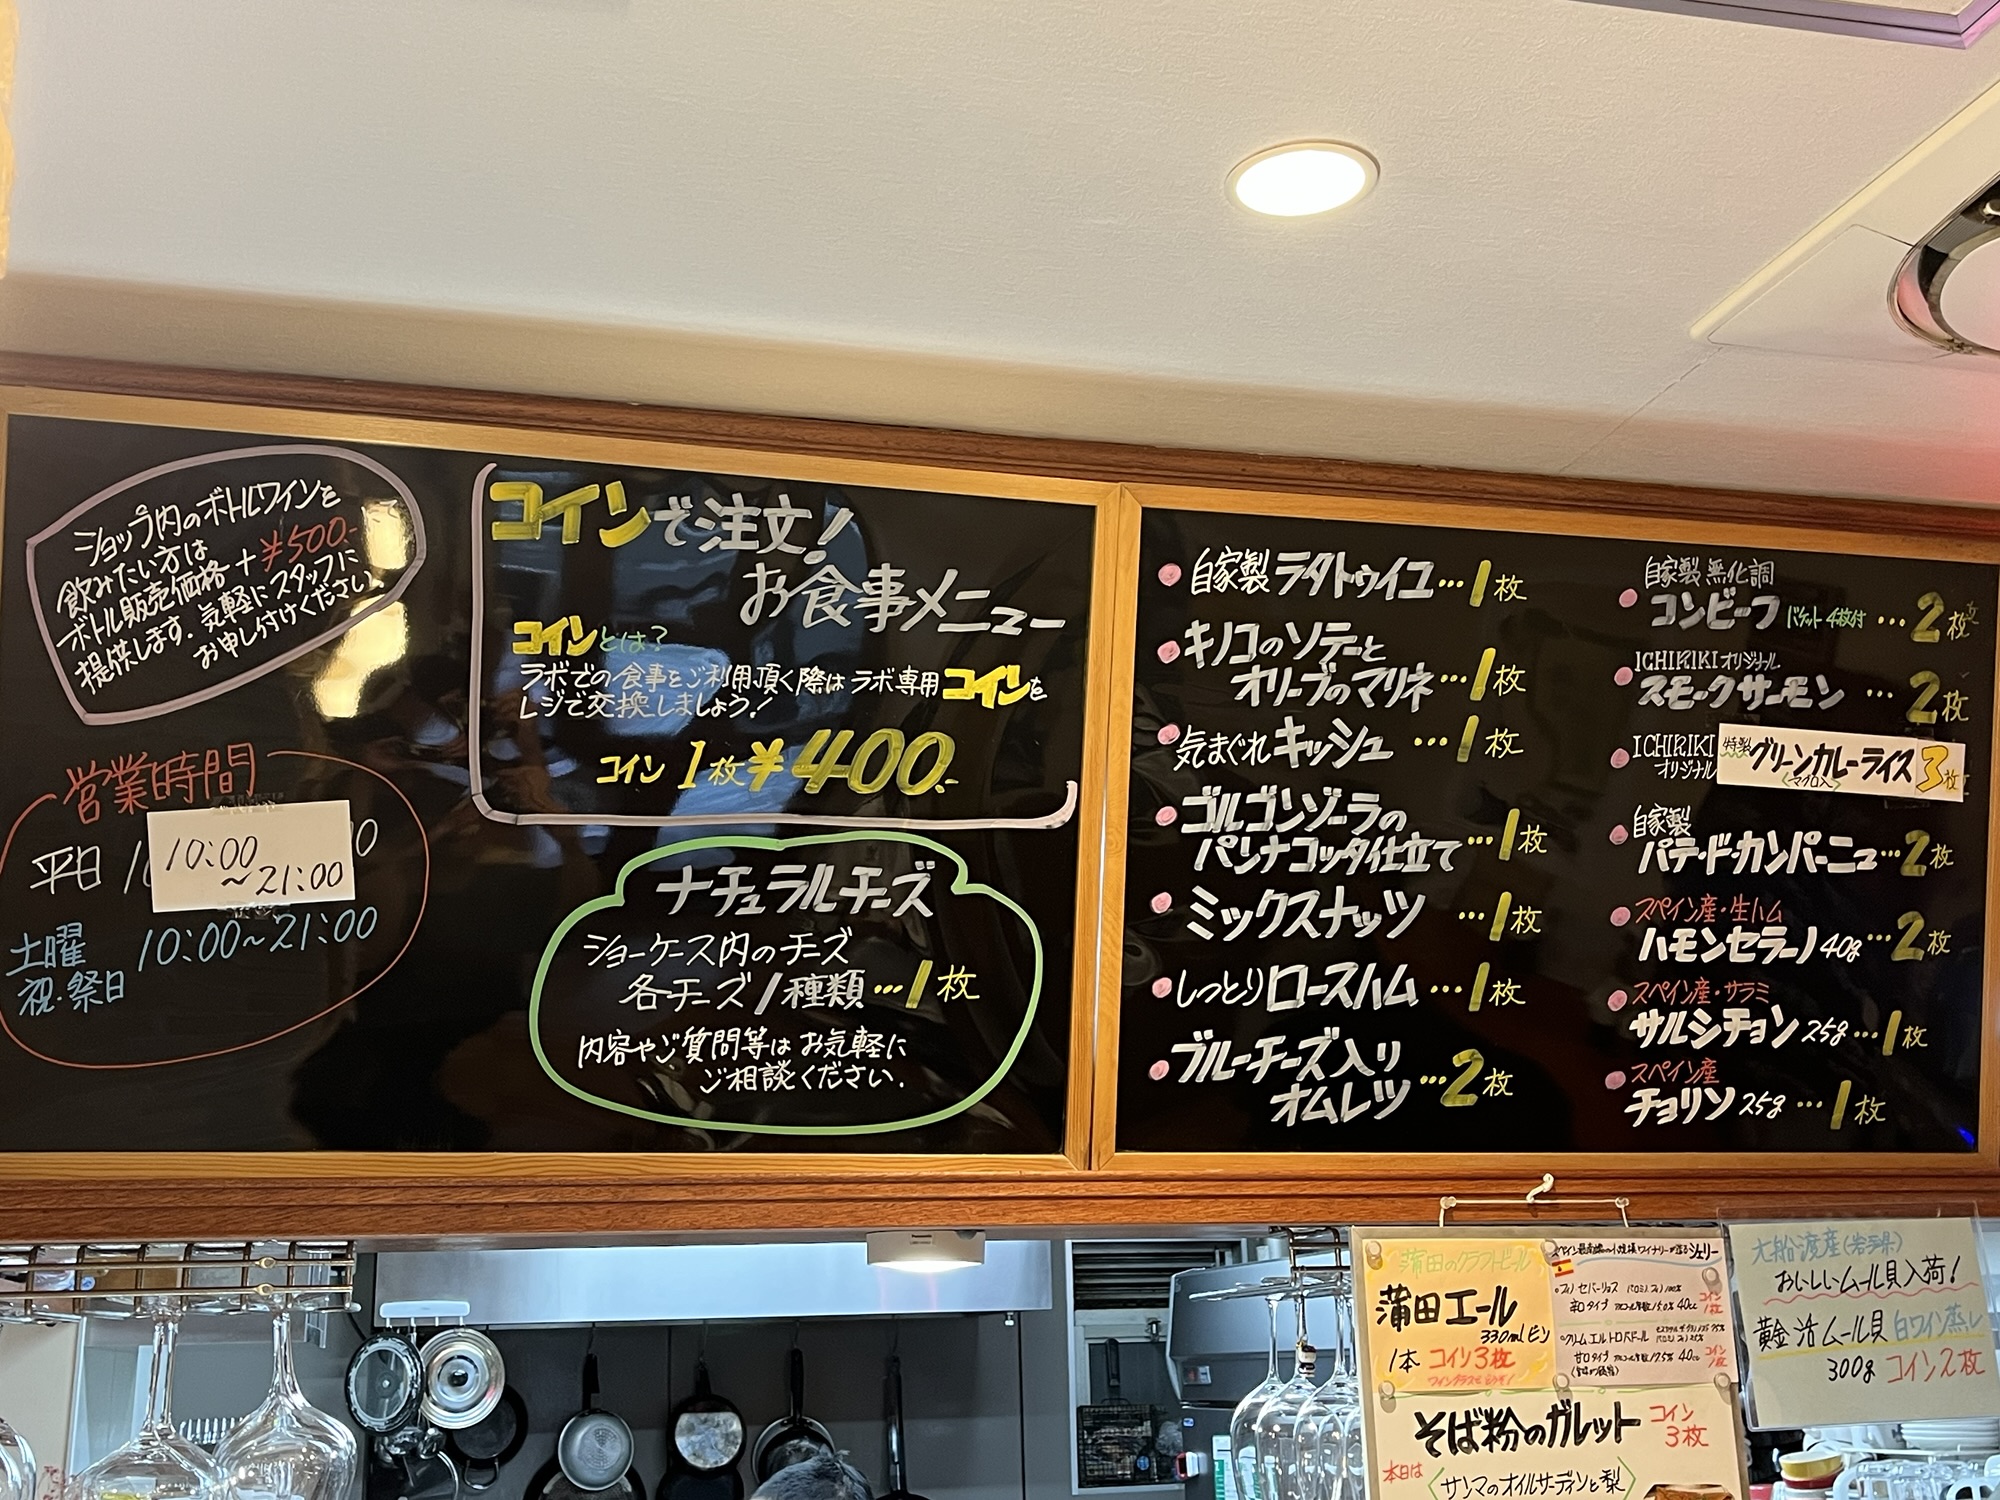 ショップ内のボトルワインを
飲みたい方は
ボトル販売価格+¥500.-
提供します。気軽にスタッフに
お申し付けください。
営業時間
平日
10:00
~21:00
土曜
祝・祭日
10:00~21:00
コインで注文!
お食事メニュー
コインとは?
ラボでの食事をご利用頂く際はラボ専用コインを
レジで交換しましょう!
コイン1枚¥400.-
ナチュラルチーズ
ショーケース内のチーズ
各チーズ1種類…1枚
内容やご質問等はお気軽に
ご相談ください.
自家製ラタトゥイユ…1枚
キノコのソテーと
オリーブのマリネ…1枚
気まぐれキッシュ…1枚
ゴルゴンゾーラの
パンナコッタ仕立て…1枚
ミックスナッツ…1枚
しっとりロースハム…1枚
ブルーチーズ入り
オムレツ…2枚
自家製 無化調
コンビーフ バケット4枚付…2枚
ICHIRIKIオリジナル
スモークサーモン…2枚
ICHIRIKI
オリジナル
特製グリーンカレーライス3枚
自家製
パテ・ド・カンパーニュ…2枚
スペイン産・生ハム
ハモンセラーノ40g…2枚
スペイン産・サラミ
サルシチョン25g…1枚
スペイン産
チョリソ25g…1枚
蒲田のクラフトビール
蒲田エール
330mlビン
1本 コイン3枚
シェリー
辛口タイプ
40cc
コイン
1枚
クリームエルトロバドール
甘口タイプ
40cc
コイン
1枚
そば粉のガレット
コイン
3枚
本日は
サンマのオイルサーディンと梨
大船渡産(岩手県)
おいしいムール貝入荷!
黄金活ムール貝白ワイン蒸し
300g コイン2枚